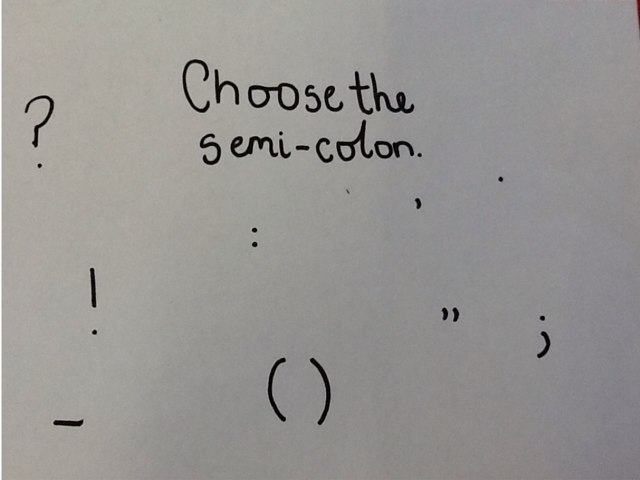 Choose the
semi-colon.
?
.
,
:
!
"
;
( )
_